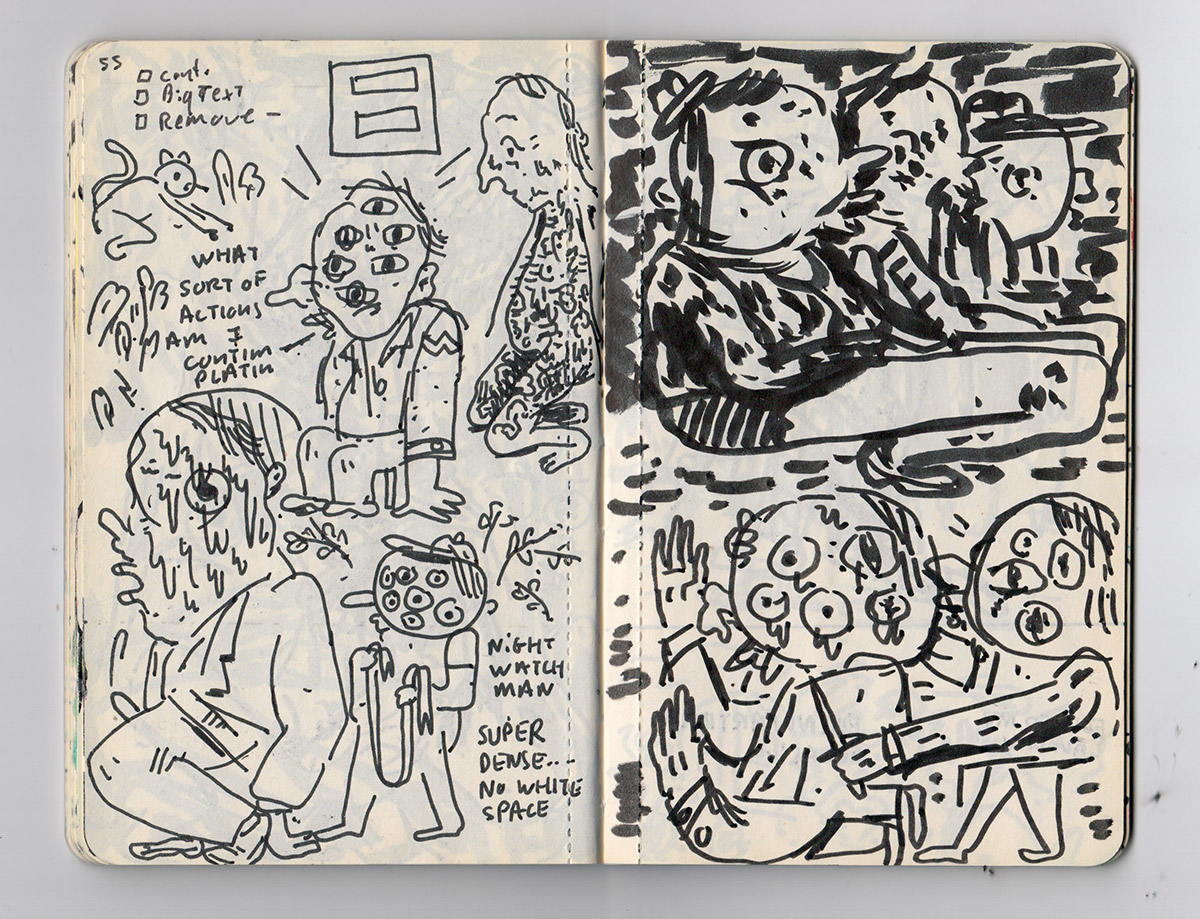 55
cont.
Big Text
Remove –
WHAT
SORT OF
ACTIONS
AM I
CONTIM
PLATIN
NIGHT
WATCH
MAN
SUPER
DENSE...
NO WHITE
SPACE